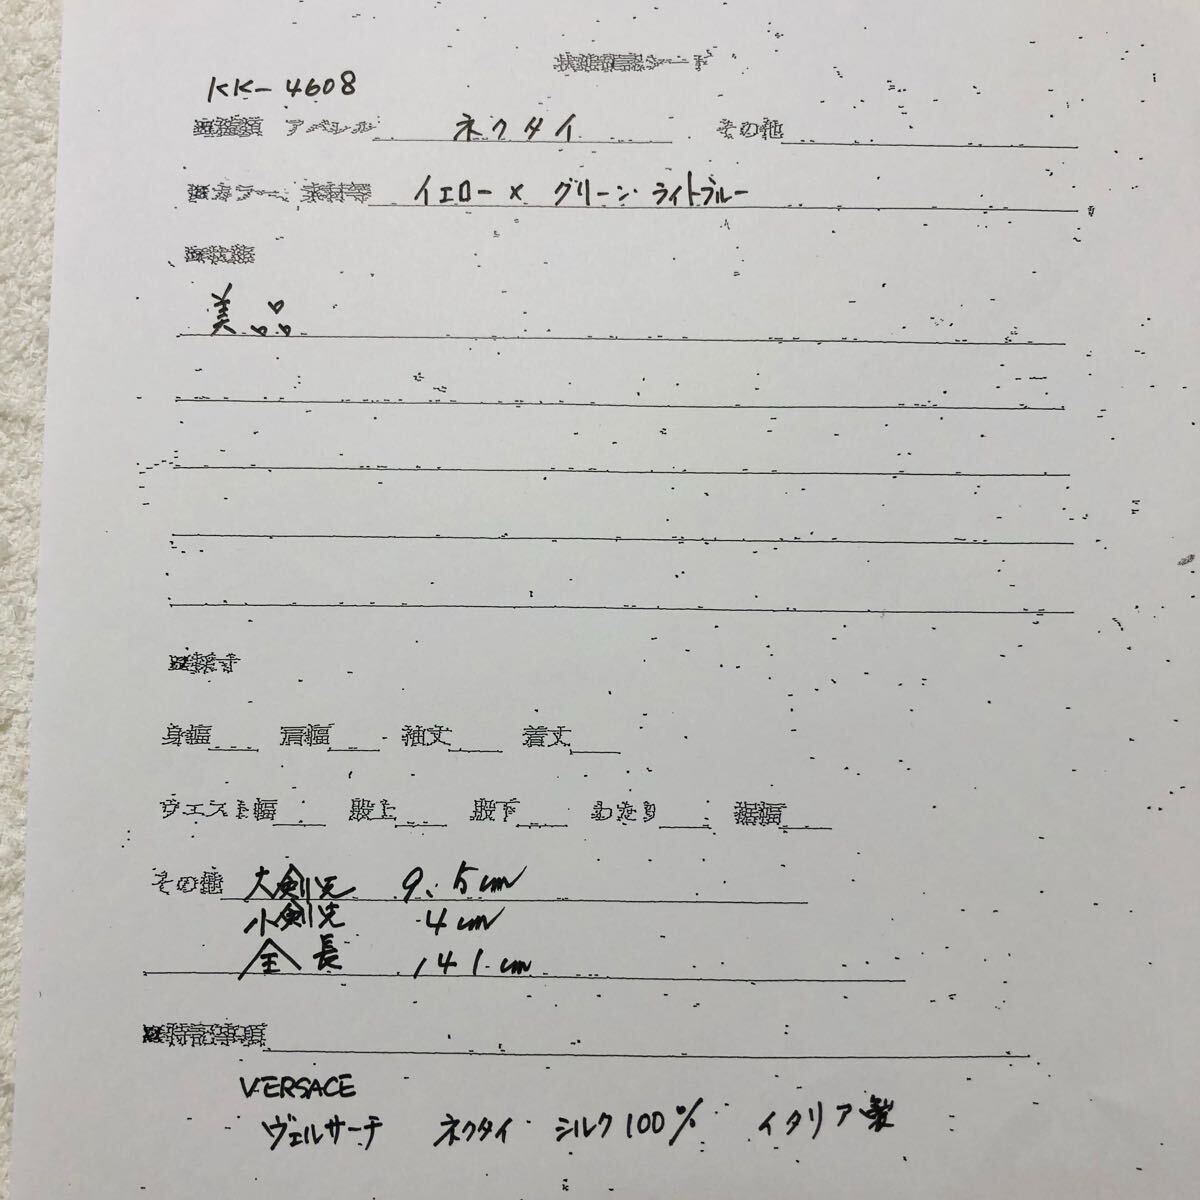 状態確認シート
KK-4608
※種類 アパレル ネクタイ その他
※カラー、素材等 イエロー×グリーン・ライトブルー
※状態
美品
※採寸
身幅 肩幅 袖丈 着丈
ウエスト幅 股上 股下 わたり 裾幅
その他 大剣先 9.5cm
小剣先 4cm
全長 141cm
※特記事項
VERSACE
ヴェルサーチ ネクタイ シルク100% イタリア製